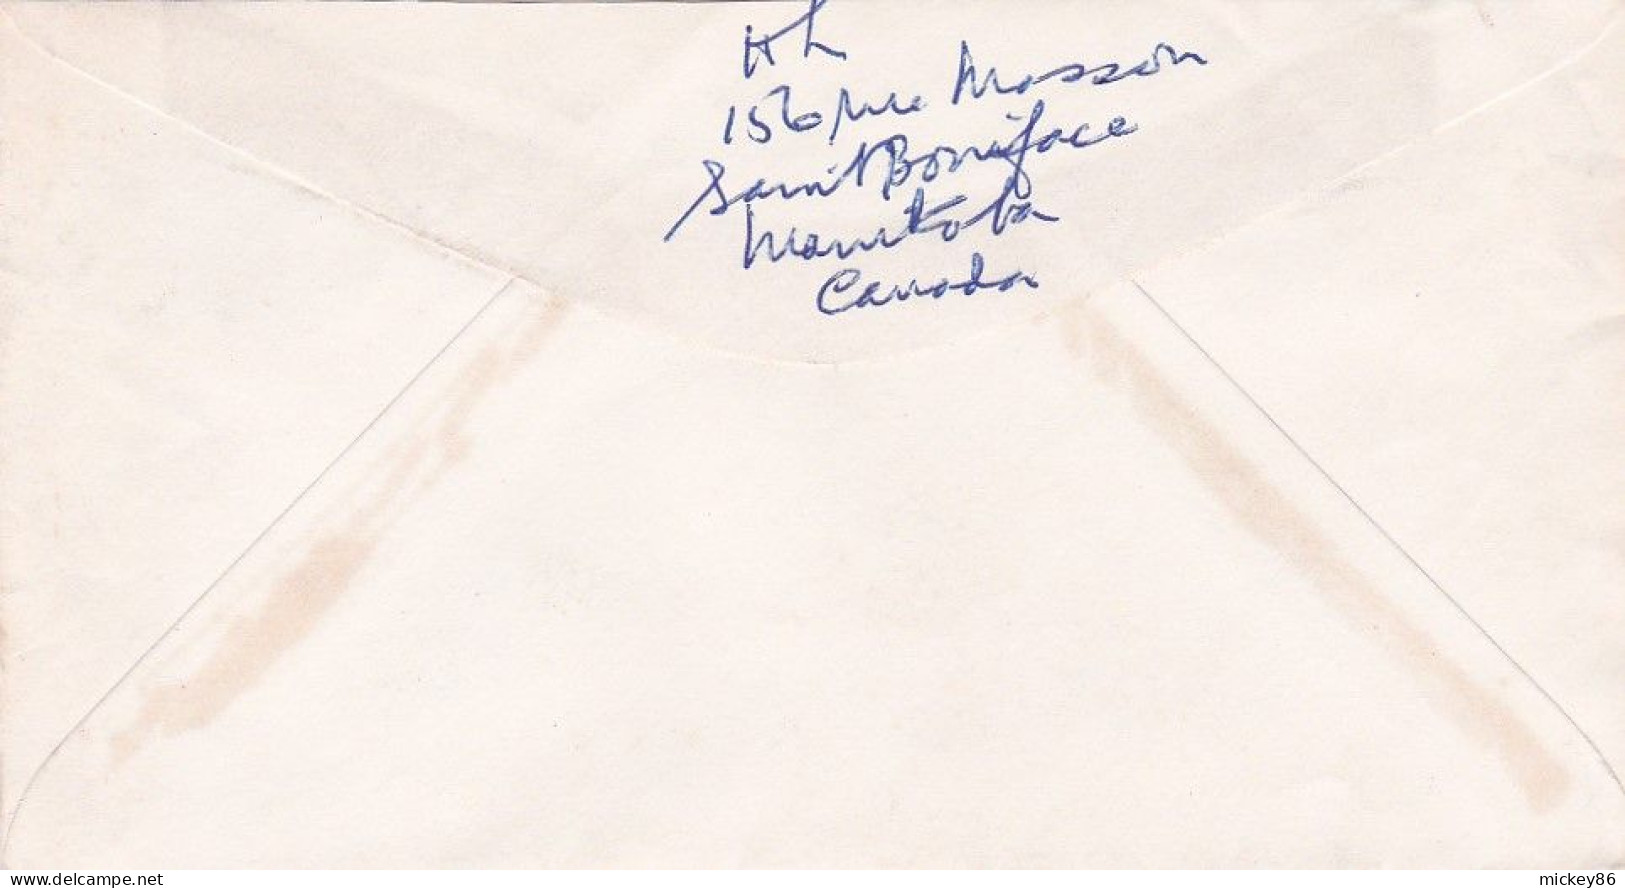 H L
156 rue Masson
Saint Boniface
Manitoba
Canada
www.delcampe.net
mickey86